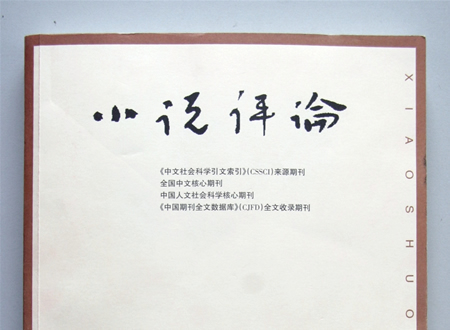 小说评论
《中文社会科学引文索引》(CSSCI)来源期刊
全国中文核心期刊
中国人文社会科学核心期刊
《中国期刊全文数据库》(CJFD)全文收录期刊
XIAOSHUO